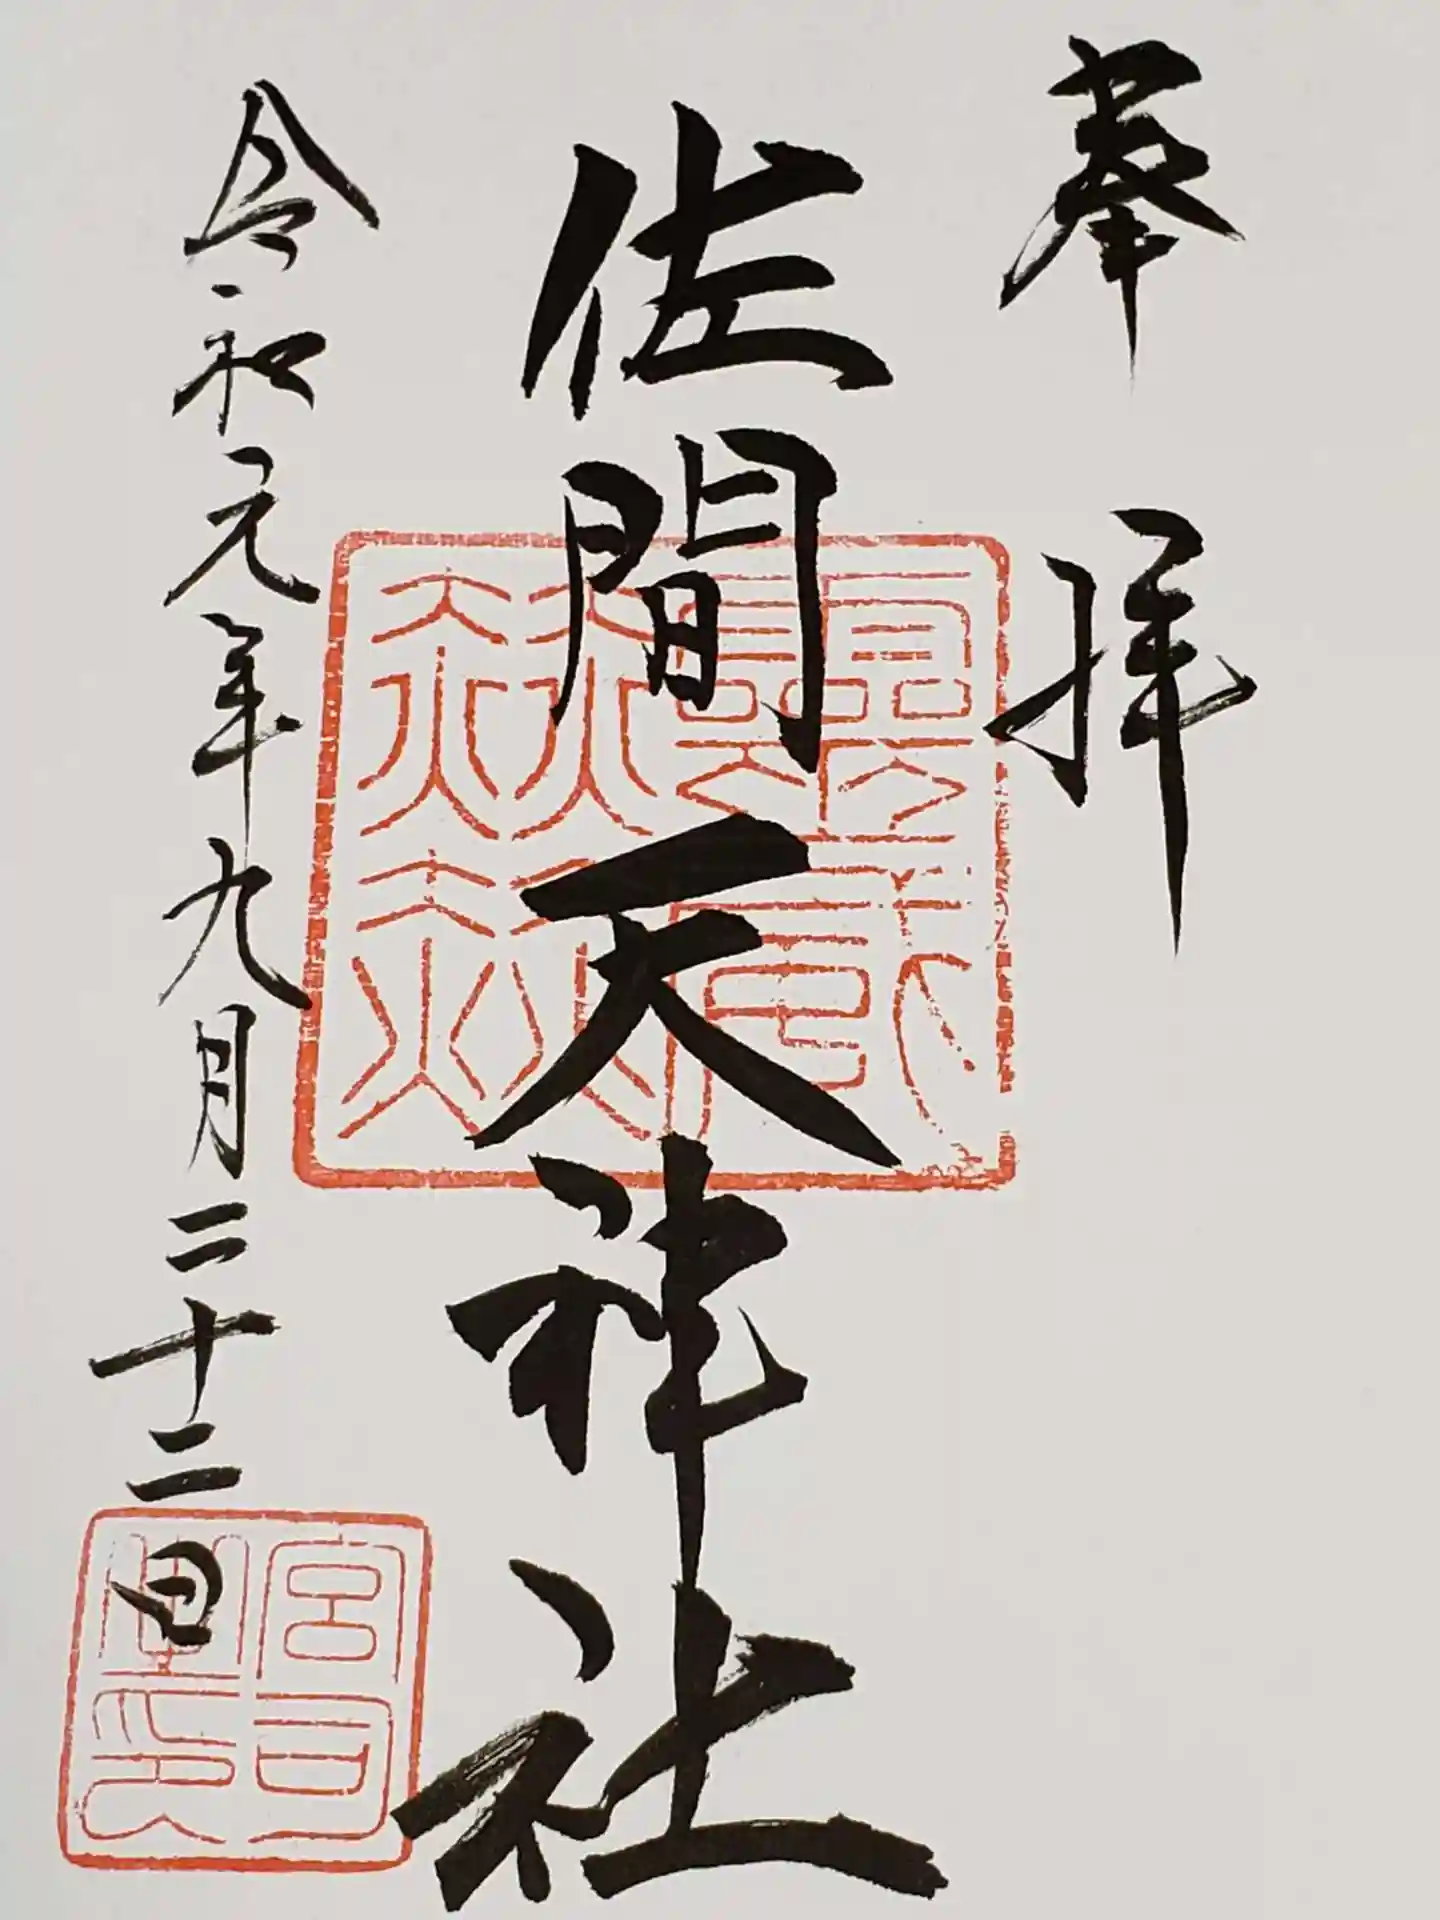 奉拝
佐間天神社
令和元年九月二十二日
靈威赫赫
宮司之印